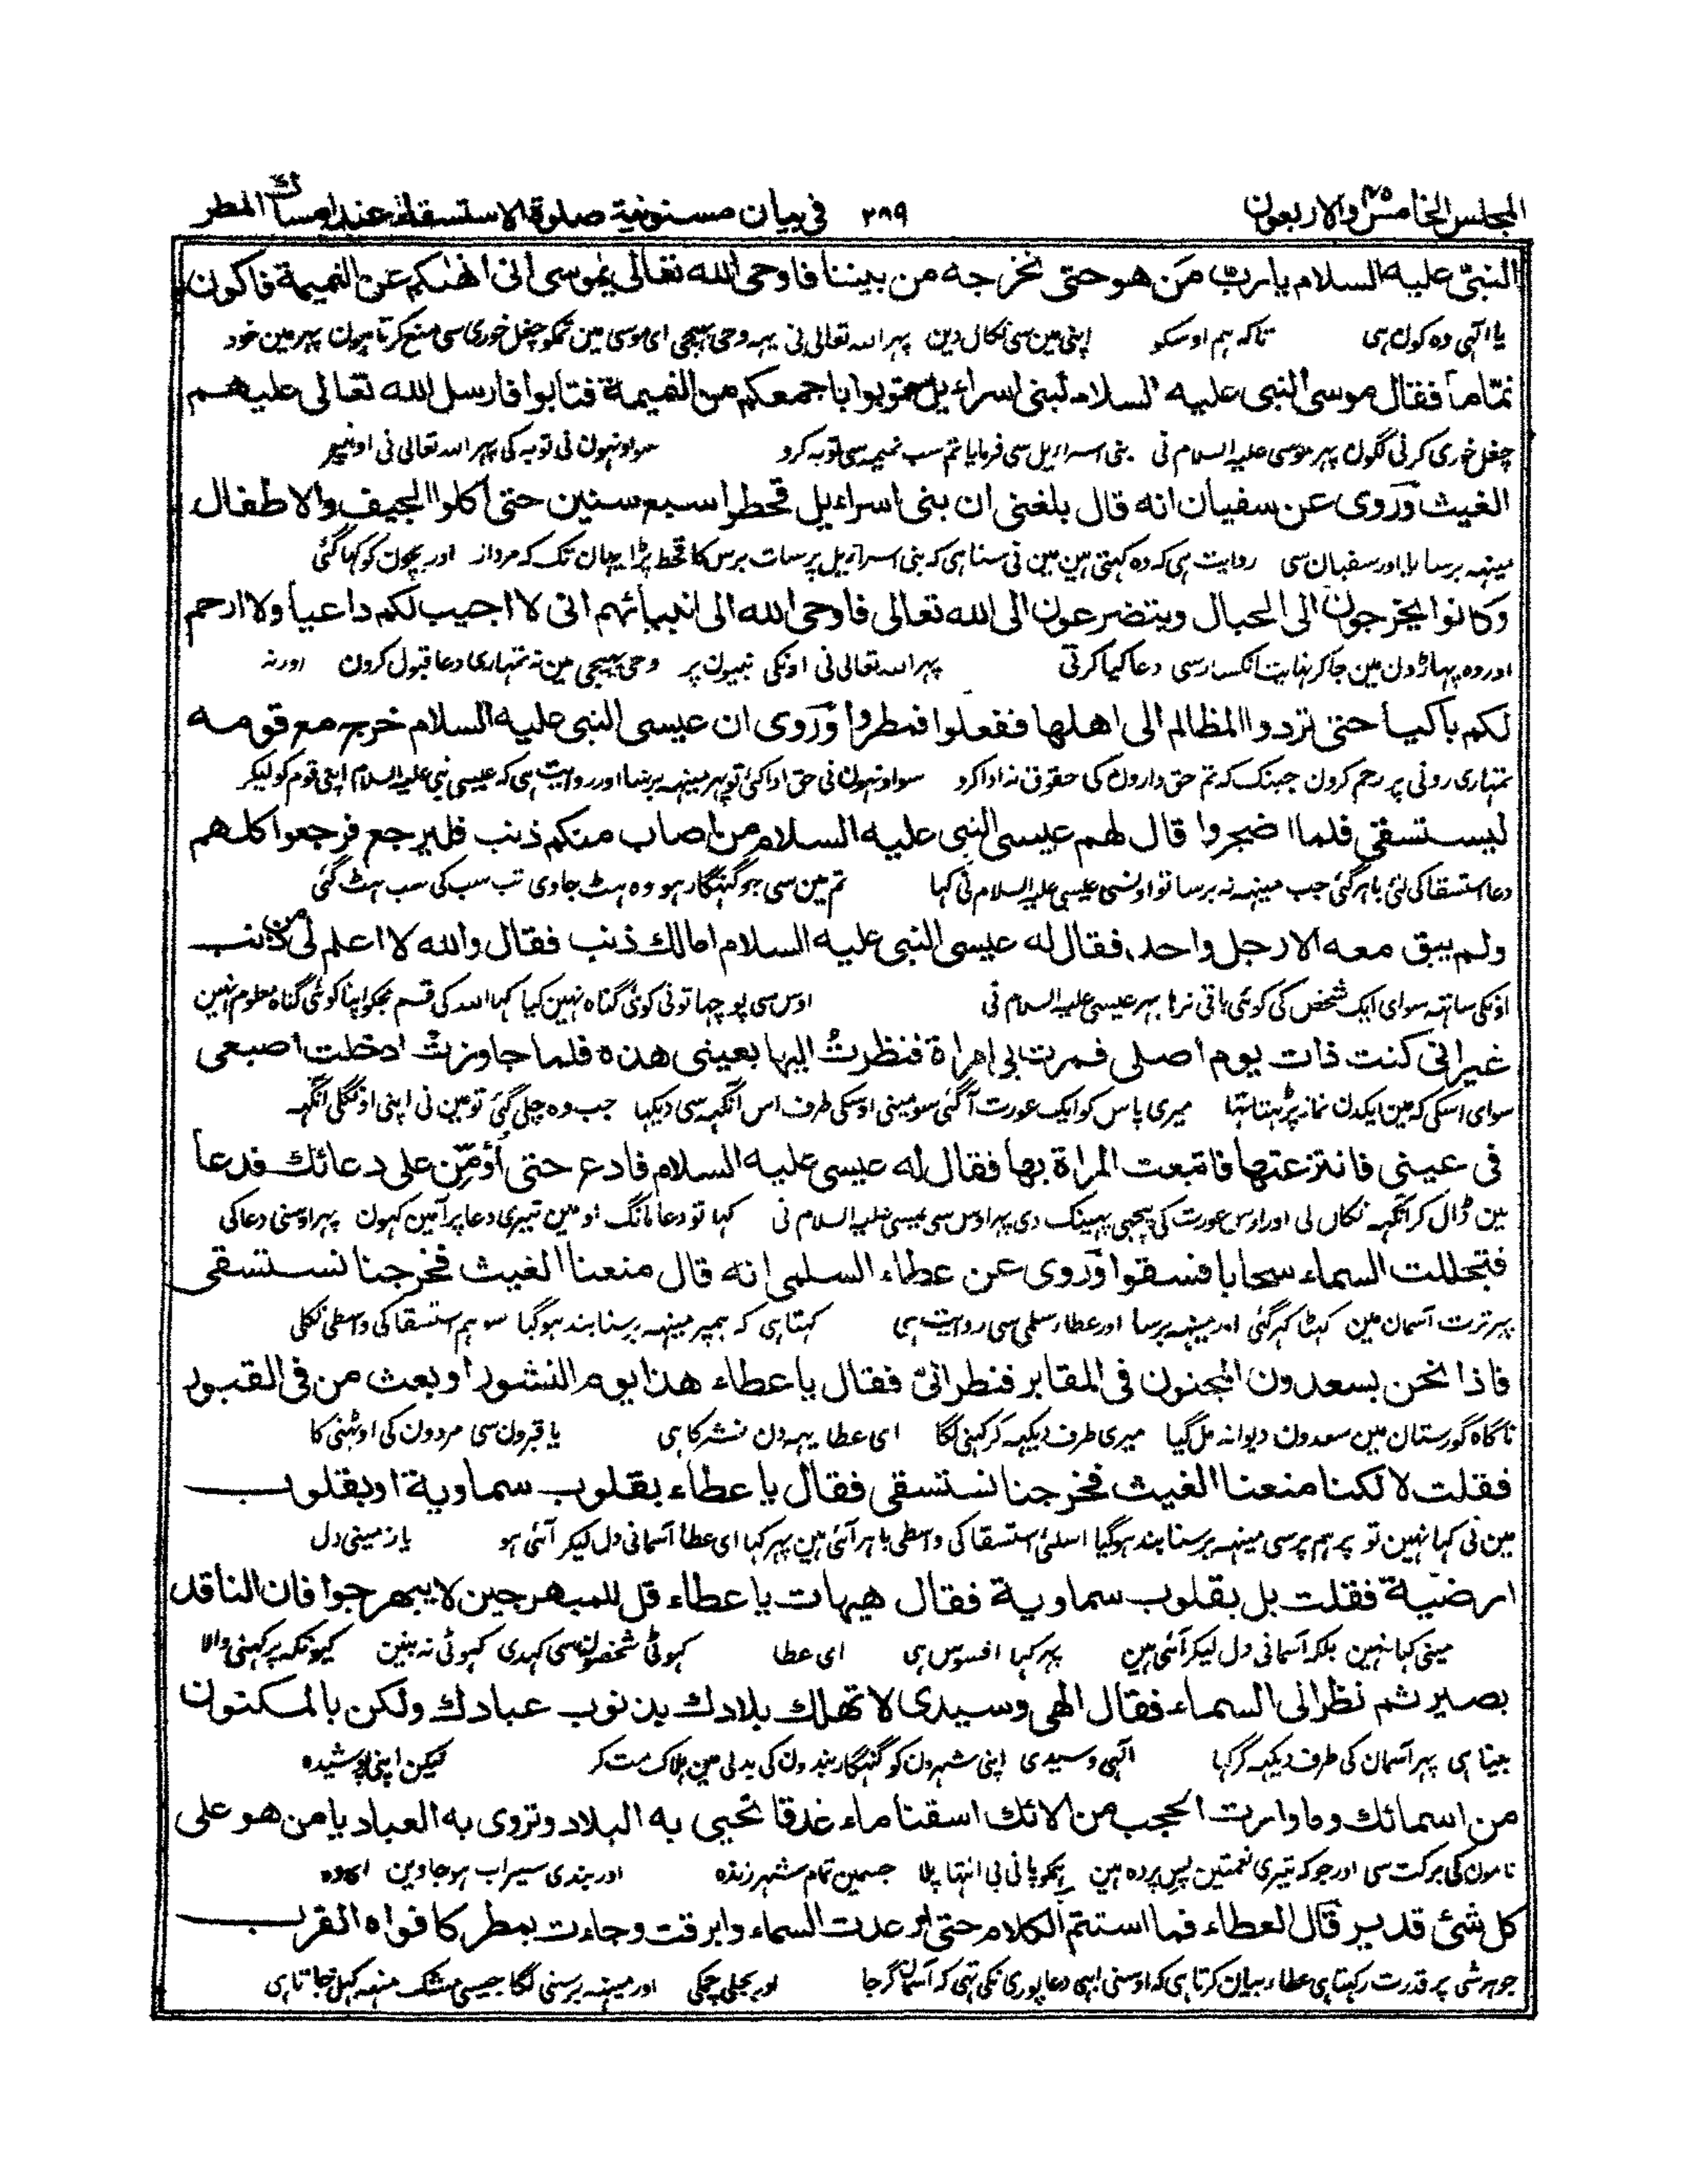 المجلس الخامس والاربعون ٣٨٩ فى بيان مسنونية صلوة الاستسقاء عند امساك المطر
النبىّ عليه السلام يا ربّ مَن هو حتى نخرجه من بيننا فاوحى الله تعالى يٰموسى انى انهٰكم عن النميمة فاكون
يا الٰہی وہ کون ہی تاکہ ہم اوسکو اپنی مین سی نکال دین پہر اللہ تعالی نی یہہ وحی بہیجی ای موسی مین تمکو چغل خوری سی منع کرتا ہون پہر مین خود
نمّاماً فقال موسى النبى عليه السلام لبنى اسراءيل توبوا باجمعكم من النميمة فتابوا فارسل الله تعالى عليهم
چغل خوری کرنی لگون پہر موسی علیہ السلام نی بنی اسراءیل سی فرمایا تم سب نمیمہ سی توبہ کرو سو اونہون نی توبہ کی پہر اللہ تعالی نی اونپر
الغيث وروى عن سفيان انه قال بلغنى ان بنى اسراءيل قحطوا سبع سنين حتى اكلوا الجيف والاطفال
مینہہ برسایا اور سفیان سی روایت ہی کہ وہ کہتی ہین مین نی سنا ہی کہ بنی اسراءیل پر سات برس کا قحط پڑا یہان تک کہ مردار اور بچون کو کہا گئی
وكانوا يخرجون الى الجبال ويتضرعون الى الله تعالى فاوحى الله الى انبيائهم انى لا اجيب لكم داعياً ولا ارحم
اور وہ پہاڑون مین جاکر نہایت انکسار سی دعا کیا کرتی پہر اللہ تعالی نی اونکی نبیون پر وحی بہیجی مین نہ تمہاری دعا قبول کرون اور نہ
لكم باكياً حتى تردوا المظالم الى اهلها ففعلوا فمطروا وروى ان عيسى النبى عليه السلام خرج مع قومه
تمہاری رونی پر رحم کرون جبتک کہ تم حق دارون کی حقوق نہ ادا کرو سو اونہون نی حق ادا کئی تو پہر مینہہ برسا اور روایت ہی کہ عیسی نبی علیہ السلام اپنی قوم کو لیکر
ليستسقى فلما ضجروا قال لهم عيسى النبى عليه السلام من اصاب منكم ذنب فليرجع فرجعوا كلهم
دعا استسقا کی لئی باہر گئی جب مینہہ نہ برسا تو اونسی عیسی علیہ السلام نی کہا تم مین سی جو گنہگار ہو وہ ہٹ جاوی تب سب کی سب ہٹ گئی
ولم يبق معه الا رجل واحد فقال له عيسى النبى عليه السلام اما لك ذنب فقال والله لا اعلم لى من ذنب
اونکی ساتہہ سوای ایک شخص کی کوئی باقی نرہا پہر عیسی علیہ السلام نی اوس سی پوچہا تونی کوئی گناہ نہین کیا کہا اللہ کی قسم مجکو اپنا کوئی گناہ معلوم نہین
غير انى كنت ذات يوم اصلى فمرت بى امراة فنظرتُ اليها بعينى هذه فلما جاوزتْ ادخلت اصبعى
سوای اسکی کہ مین ایکدن نماز پڑہتا تہا میری پاس کو ایک عورت آگئی سو مینی اوسکی طرف اس آنکہہ سی دیکہا جب وہ چلی گئی تو مین نی اپنی اونگلی آنکہہ
فى عينى فانتزعتها فاتبعت المراة بها فقال له عيسى عليه السلام فادع حتى أؤمّن على دعائك فدعا
مین ڈال کر آنکہہ نکال لی اور اوس عورت کی پیچہی پہینک دی پہر اوس سی عیسی علیہ السلام نی کہا تو دعا مانگ اور مین تیری دعا پر آمین کہون پہر اوسنی دعا کی
فتجللت السماء سحابا فسقوا وروى عن عطاء السلمى انه قال منعنا الغيث فخرجنا نستسقى
پہر ترت آسمان مین گہٹا گہر گئی اور مینہہ برسا اور عطاء سلمی سی روایت ہی کہتا ہی کہ ہمپر مینہہ برسنا بند ہوگیا سو ہم استسقا کی واسطی نکلی
فاذا نحن بسعدون المجنون فى المقابر فنظر الىّ فقال يا عطاء هذا يوم النشور او بعث من فى القبور
ناگاہ گورستان مین سعدون دیوانہ مل گیا میری طرف دیکہہ کر کہنی لگا ای عطا یہہ دن نشر کا ہی یا قبرون سی مردون کی اوٹہنی کا
فقلت لا لكنا منعنا الغيث فخرجنا نستسقى فقال يا عطاء بقلوب سماوية او بقلوب
مین نی کہا نہین تو پر ہم پر سی مینہہ برسنا بند ہوگیا اسلئی استسقا کی واسطی باہر آئی ہین پہر کہا ای عطا آسمانی دل لیکر آئی ہو یا زمینی دل
ارضيّة فقلت بل بقلوب سماوية فقال هيهات يا عطاء قل للمبهرجين لا يبهرجوا فان الناقد
مینی کہا نہین بلکہ آسمانی دل لیکر آئی ہین پہر کہا افسوس ہی ای عطا کہوٹی شخصون سی کہدی کہوٹی نہ بنین کیونکہ پرکہنی والا
بصير ثم نظر الى السماء فقال الهى وسيدى لا تهلك بلادك بذنوب عبادك ولكن بالمكنون
بینا ہی پہر آسمان کی طرف دیکہہ کر کہا الٰہی وسیدی اپنی شہرون کو گنہگار بندون کی بدلی مین ہلاک مت کر لیکن اپنی پوشیدہ
من اسمائك وما وارت الحجب من الائك اسقنا ماء غدقا تحيى به البلاد وتروى به العباد يا من هو على
نامون کی برکت سی اور جو کہ تیری نعمتین پس پردہ ہین ہمکو پانی بی انتہا پلا جسمین تمام شہر زندہ اور بندی سیراب ہوجاوین ای وہ
كل شئ قدير قال العطاء فما استتم الكلام حتى ارعدت السماء وابرقت وجاءت بمطر كافواه القرب
جو ہر شی پر قدرت رکہتا ہی عطاء بیان کرتا ہی کہ اوسنی ابہی دعا پوری نکی تہی کہ آسمان گرجا اور بجلی چمکی اور مینہہ برسنی لگا جیسی مشک منہہ کہل جاتا ہی